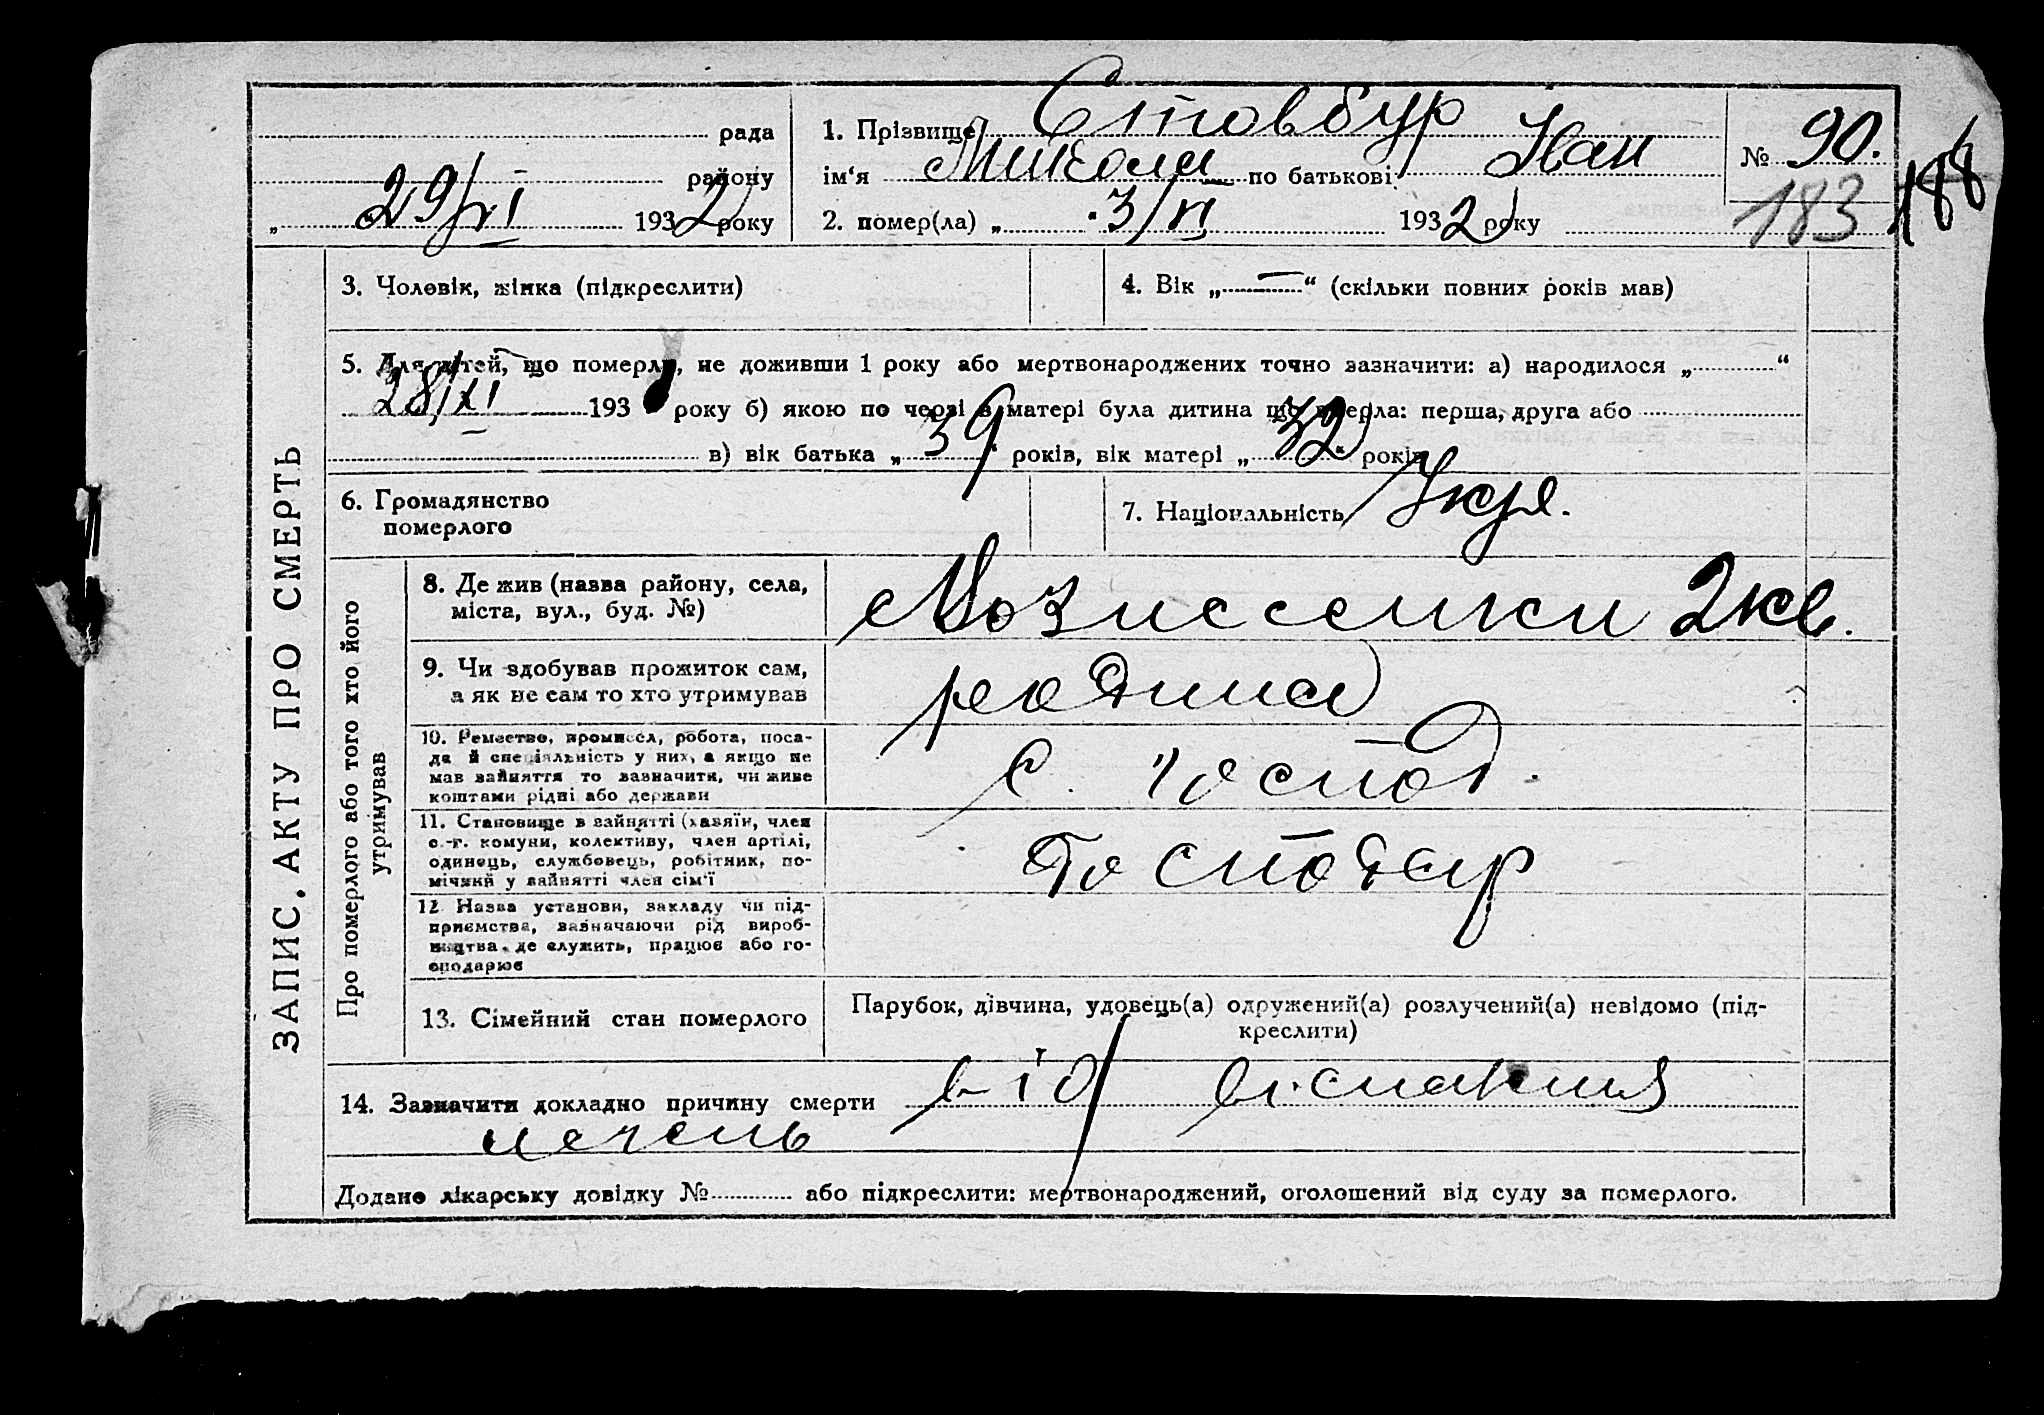 рада
району
„ 29/VI 1932 року
1. Прізвище Стовбур
ім‘я Микола по батькові Іван
2. помер(ла) „ 3/VI 1932 року
№ 90.
183 188
ЗАПИС АКТУ ПРО СМЕРТЬ
3. Чоловік, жінка (підкреслити)
4. Вік „ — “ (скільки повних років мав)
5. Для дітей, що померли, не доживши 1 року або мертвонароджених точно зазначити: а) народилося „ “
28/XI 193 року б) якою по черзі в матері була дитина що вмерла: перша, друга або
в) вік батька „ 39 “ років, вік матері „ 32 “ років
6. Громадянство
померлого
7. Національність Укр.
Про померлого або того хто його
утримував
8. Де жив (назва району, села,
міста, вул., буд. №)
2 кв.
9. Чи здобував прожиток сам,
а як не сам то хто утримував
родина
10. Ремество, промисел, робота, поса-
да й спеціяльність у них, а якщо не
мав зайняття то зазначити, чи живе
коштами рідні або держави
с. господ.
11. Становище в зайнятті (хазяїн, член
с.-г. комуни, колективу, член артілі,
одинець, службовець, робітник, по-
мічний у зайнятті член сім‘ї
Господар
12. Назва установи, закладу чи під-
приємства, зазначаючи рід вироб-
ництва, де служить, працює або го-
сподарює
13. Сімейний стан померлого
Парубок, дівчина, удовець(а) одружений(а) розлучений(а) невідомо (під-
креслити)
14. Зазначити докладно причину смерти від
Додано лікарську довідку № або підкреслити: мертвонароджений, оголошений від суду за померлого.